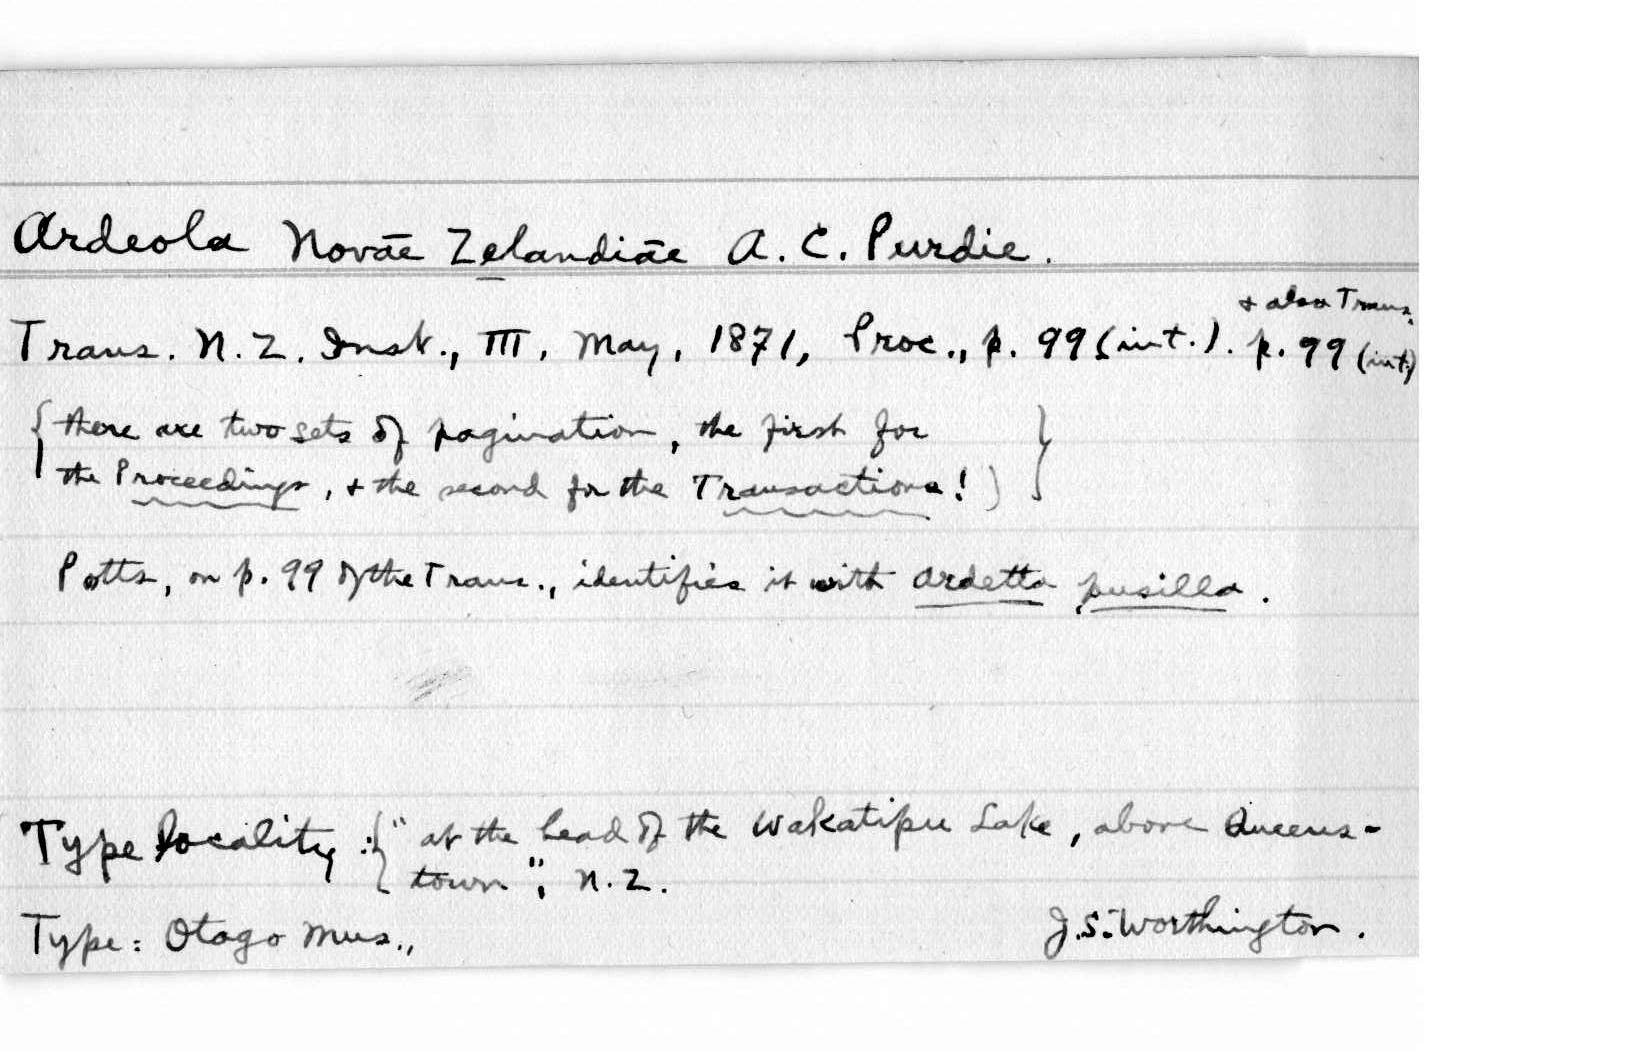 Ardeola Novāe Zelandiāe A. C. Purdie.
& also Trans.
Trans. N. Z. Inst., III, May, 1871, Proc., p. 99 (int.). p. 99 (int.)
{ there are two sets of pagination, the first for }
the Proceedings, & the second for the Transactions!)
Potts, on p. 99 of the Trans., identifies it with Ardetta pusilla.
Type locality :{ "at the head of the Wakatipu Lake, above Queens-
town", N. Z.
Type: Otago Mus., J. S. Worthington.